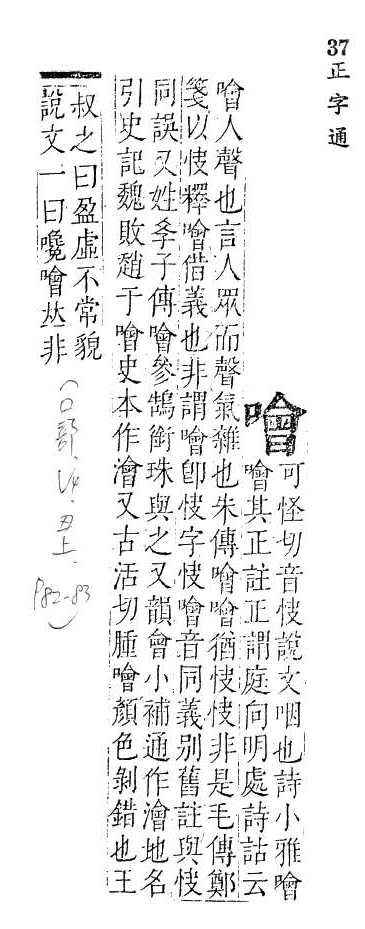 37
正字通
噲
可怪切音快說文咽也詩小雅噲
噲其正註正謂庭向明處詩詁云
噲人聲也言人眾而聲氣雜也朱傳噲噲猶快快非是毛傳鄭
箋以快釋噲借義也非謂噲卽快字快噲音同義别舊註與快
同誤又姓孝子傳噲參鵠銜珠與之又韻會小補通作澮地名
引史記魏敗趙于噲史本作澮又古活切腫噲顏色剝錯也王
叔之曰盈虛不常貌
說文一曰嚵噲𠀤非
(口部、丑上.
P82-83)